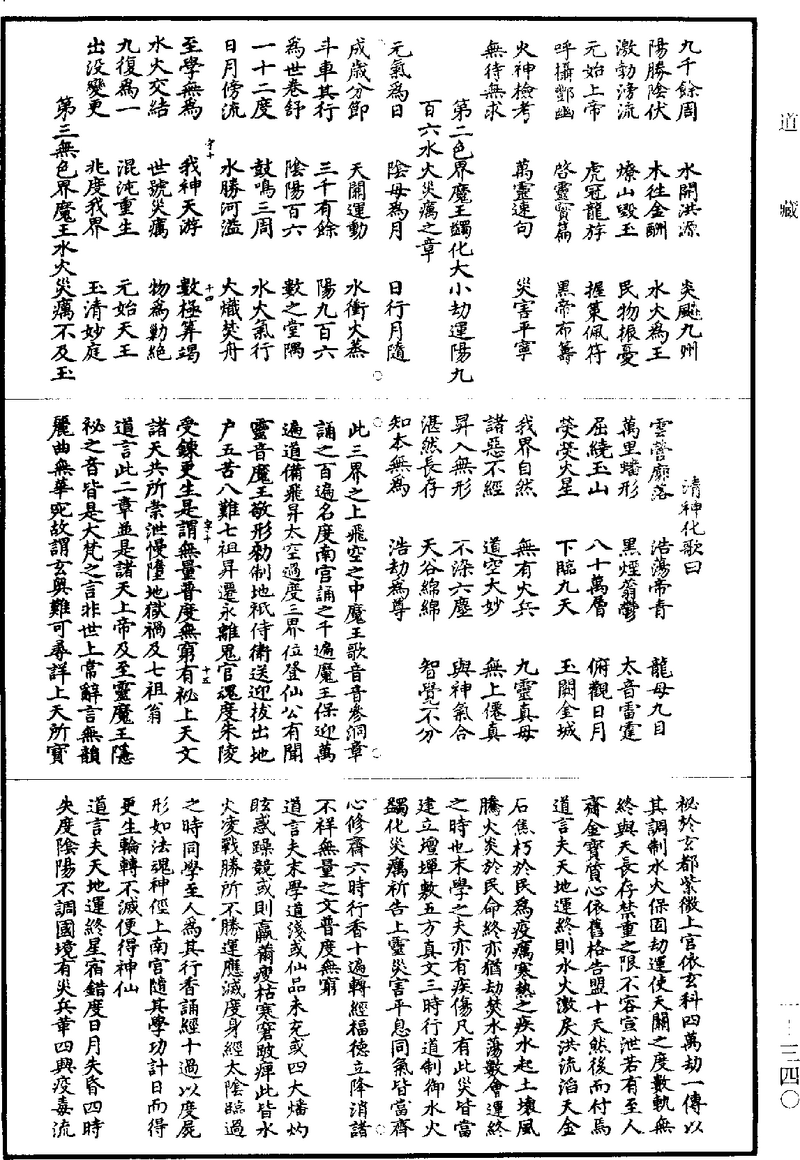 道藏
九千餘周　水開洪源　炎颷九州
陽勝陰伏　木往金酬　水火為王
激勃滂流　燎山毀玉　民物振憂
元始上帝　虎冠龍斿　握策佩符
呼攝酆幽　啓靈寶篇　黑帝布籌
火神檢考　萬靈速句　災害平寧
無待無求
第二色界魔王蠲化大小劫運陽九
百六水火災癘之章
元氣為日　陰母為月　日行月隨
成歲分節　天關運動　水衝火蒸
斗車其行　三千有餘　陽九百六
為世卷舒　陰陽百六　數之堂隅
一十二度　鼓鳴三周　水火氣行
日月傍流　水勝河溢　大熾焚舟
字十　十四
至學無為　我神天游　數極筭竭
水火交結　世號災癘　物為勦絶
九復為一　混沌重生　元始天王
出没變更　兆度我界　玉清妙庭
第三無色界魔王水火災癘不及玉
清神化歌曰
雲營廓落　浩蕩帝青　龍母九目
萬里蟠形　黑煙蓊鬱　太音雷霆
屈繞玉山　八十萬層　俯觀日月
熒熒火星　下臨九天　玉闕金城
我界自然　無有火兵　九靈真母
諸惡不經　道空大妙　無上僊真
昇入無形　不染六塵　與神氣合
湛然長存　天谷綿綿　智覺不分
知本無為　浩劫為尊
此三界之上飛空之中魔王歌音音參洞章
誦之百遍名度南宫誦之千遍魔王保迎萬
遍道備飛昇太空過度三界位登仙公有聞
靈音魔王敬形勑制地祇侍衛送迎拔出地
户五苦八難七祖昇遷永離鬼官魂度朱陵
字十　十五
受鍊更生是謂無量普度無窮有祕上天文
諸天共所崇泄慢墮地獄禍及七祖翁
道言此二章並是諸天上帝及至靈魔王隱
祕之音皆是大梵之言非世上常辭言無韻
麗曲無華宛故謂玄奥難可尋詳上天所寶
祕於玄都紫微上宫依玄科四萬劫一傳以
其調制水火保固劫運使天關之度數軌無
終與天長存禁重之限不容宣泄若有至人
齎金寶質心依舊格告盟十天然後而付焉
道言夫天地運終則水火激戾洪流滔天金
石焦朽於民為疫癘寒熱之疾水起土壞風
騰火炎於民命終亦猶劫焚水蕩數會運終
之時也末學之夫亦有疾傷凡有此災皆當
建立壇墠敷五方真文三時行道制御水火
蠲化災癘祈告上靈災害平息同氣皆當齊
心修齋六時行香十遍轉經福德立降消諸
不祥無量之文普度無窮
道言夫末學道淺或仙品未充或四大燔灼
眩惑躁競或則羸薾瘦枯寒窘跛痺此皆水
火凌戰勝所不勝運應滅度身經太陰臨過
之時同學至人為其行香誦經十過以度屍
形如法魂神徑上南宫隨其學功計日而得
更生輪轉不滅便得神仙
道言夫天地運終星宿錯度日月失昏四時
失度陰陽不調國境有災兵革四興疫毒流
一—三四〇